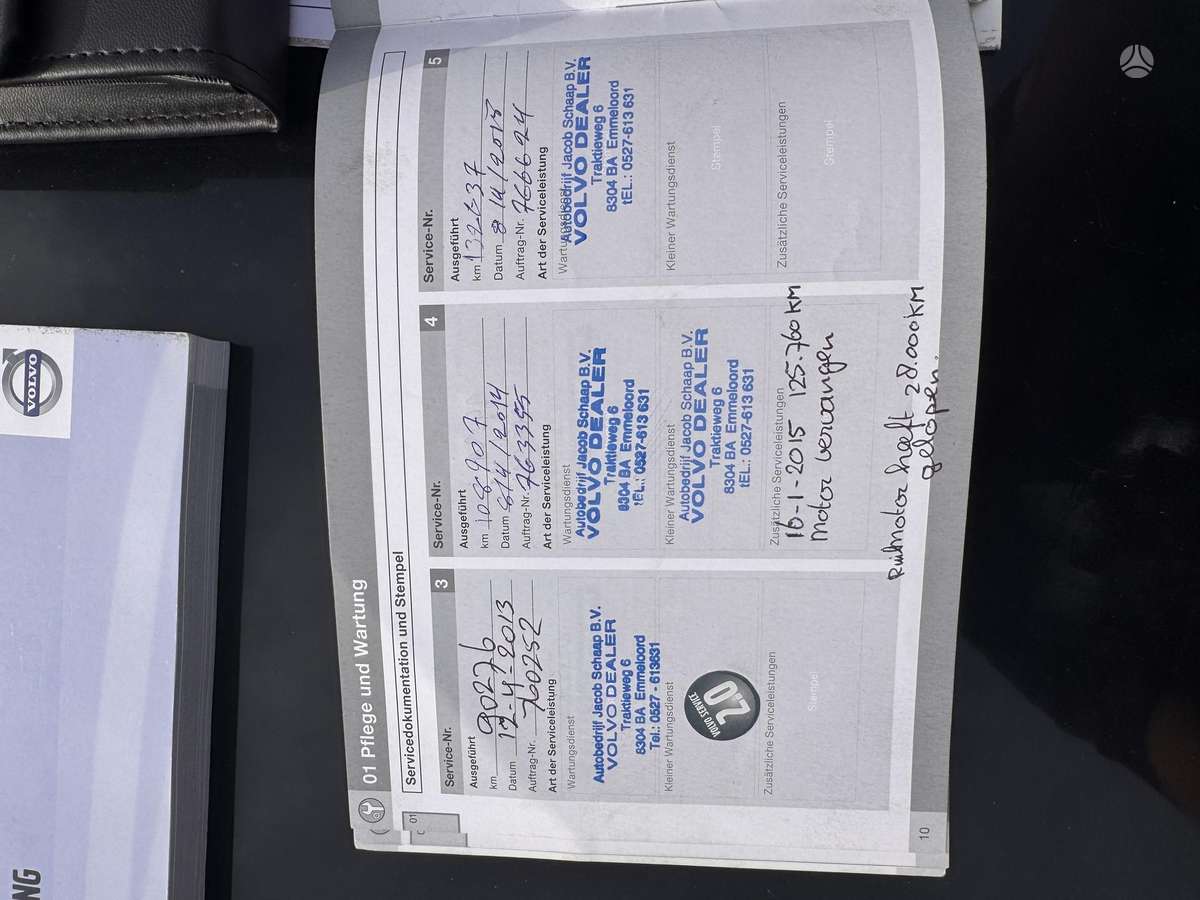 VOLVO
NG
01 Pflege und Wartung
Servicedokumentation und Stempel
01
Service-Nr. 3
Ausgeführt
km 90276
Datum 12-4-2013
Auftrag-Nr. 760252
Art der Serviceleistung
Wartungsdienst
Autobedrijf Jacob Schaap B.V.
VOLVO DEALER
Traktieweg 6
8304 BA Emmeloord
Tel.: 0527 - 613631
Kleiner Wartungsdienst
VOLVO SERVICE
2.0
Zusätzliche Serviceleistungen
Stempel
Service-Nr. 4
Ausgeführt
km 108907
Datum 8/4/2014
Auftrag-Nr. 763355
Art der Serviceleistung
Wartungsdienst
Autobedrijf Jacob Schaap B.V.
VOLVO DEALER
Traktieweg 6
8304 BA Emmeloord
tEL.: 0527-613 631
Kleiner Wartungsdienst
Autobedrijf Jacob Schaap B.V.
VOLVO DEALER
Traktieweg 6
8304 BA Emmeloord
tEL.: 0527-613 631
Zusätzliche Serviceleistungen
16-1-2015 125.760 KM
Motor vervangen
Ruilmotor heeft 28.000 KM
gelopen.
Service-Nr. 5
Ausgeführt
km 132637
Datum 8/4/2015
Auftrag-Nr. 766624
Art der Serviceleistung
Wartungsdienst
Autobedrijf Jacob Schaap B.V.
VOLVO DEALER
Traktieweg 6
8304 BA Emmeloord
tEL.: 0527-613 631
Kleiner Wartungsdienst
Stempel
Zusätzliche Serviceleistungen
Stempel
10